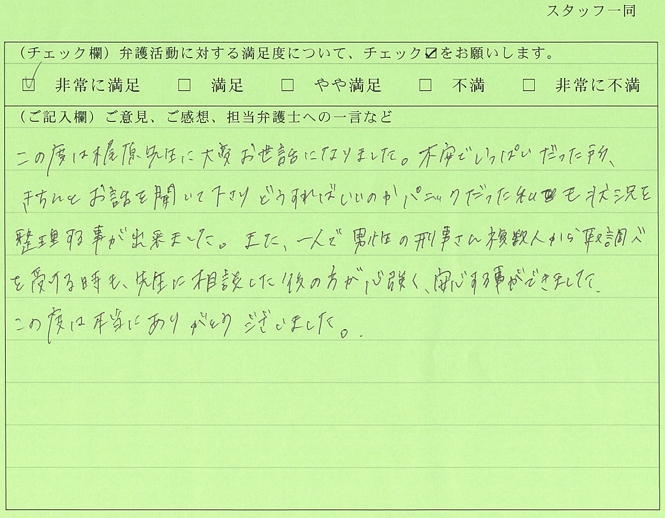 スタッフ一同
（チェック欄）弁護活動に対する満足度について、チェック☑をお願いします。
☑ 非常に満足 □ 満足 □ やや満足 □ 不満 □ 非常に不満
（ご記入欄）ご意見、ご感想、担当弁護士への一言など
この度は梶原先生に大変お世話になりました。不安でいっぱいだった所、
きちんとお話を聞いて下さりどうすればいいのかパニックだった私も状況を
整理する事が出来ました。また、一人で男性の刑事さん複数人から取調べ
を受ける時も、先生に相談した後の方が心強く、安心する事ができました。
この度は本当にありがとうございました。